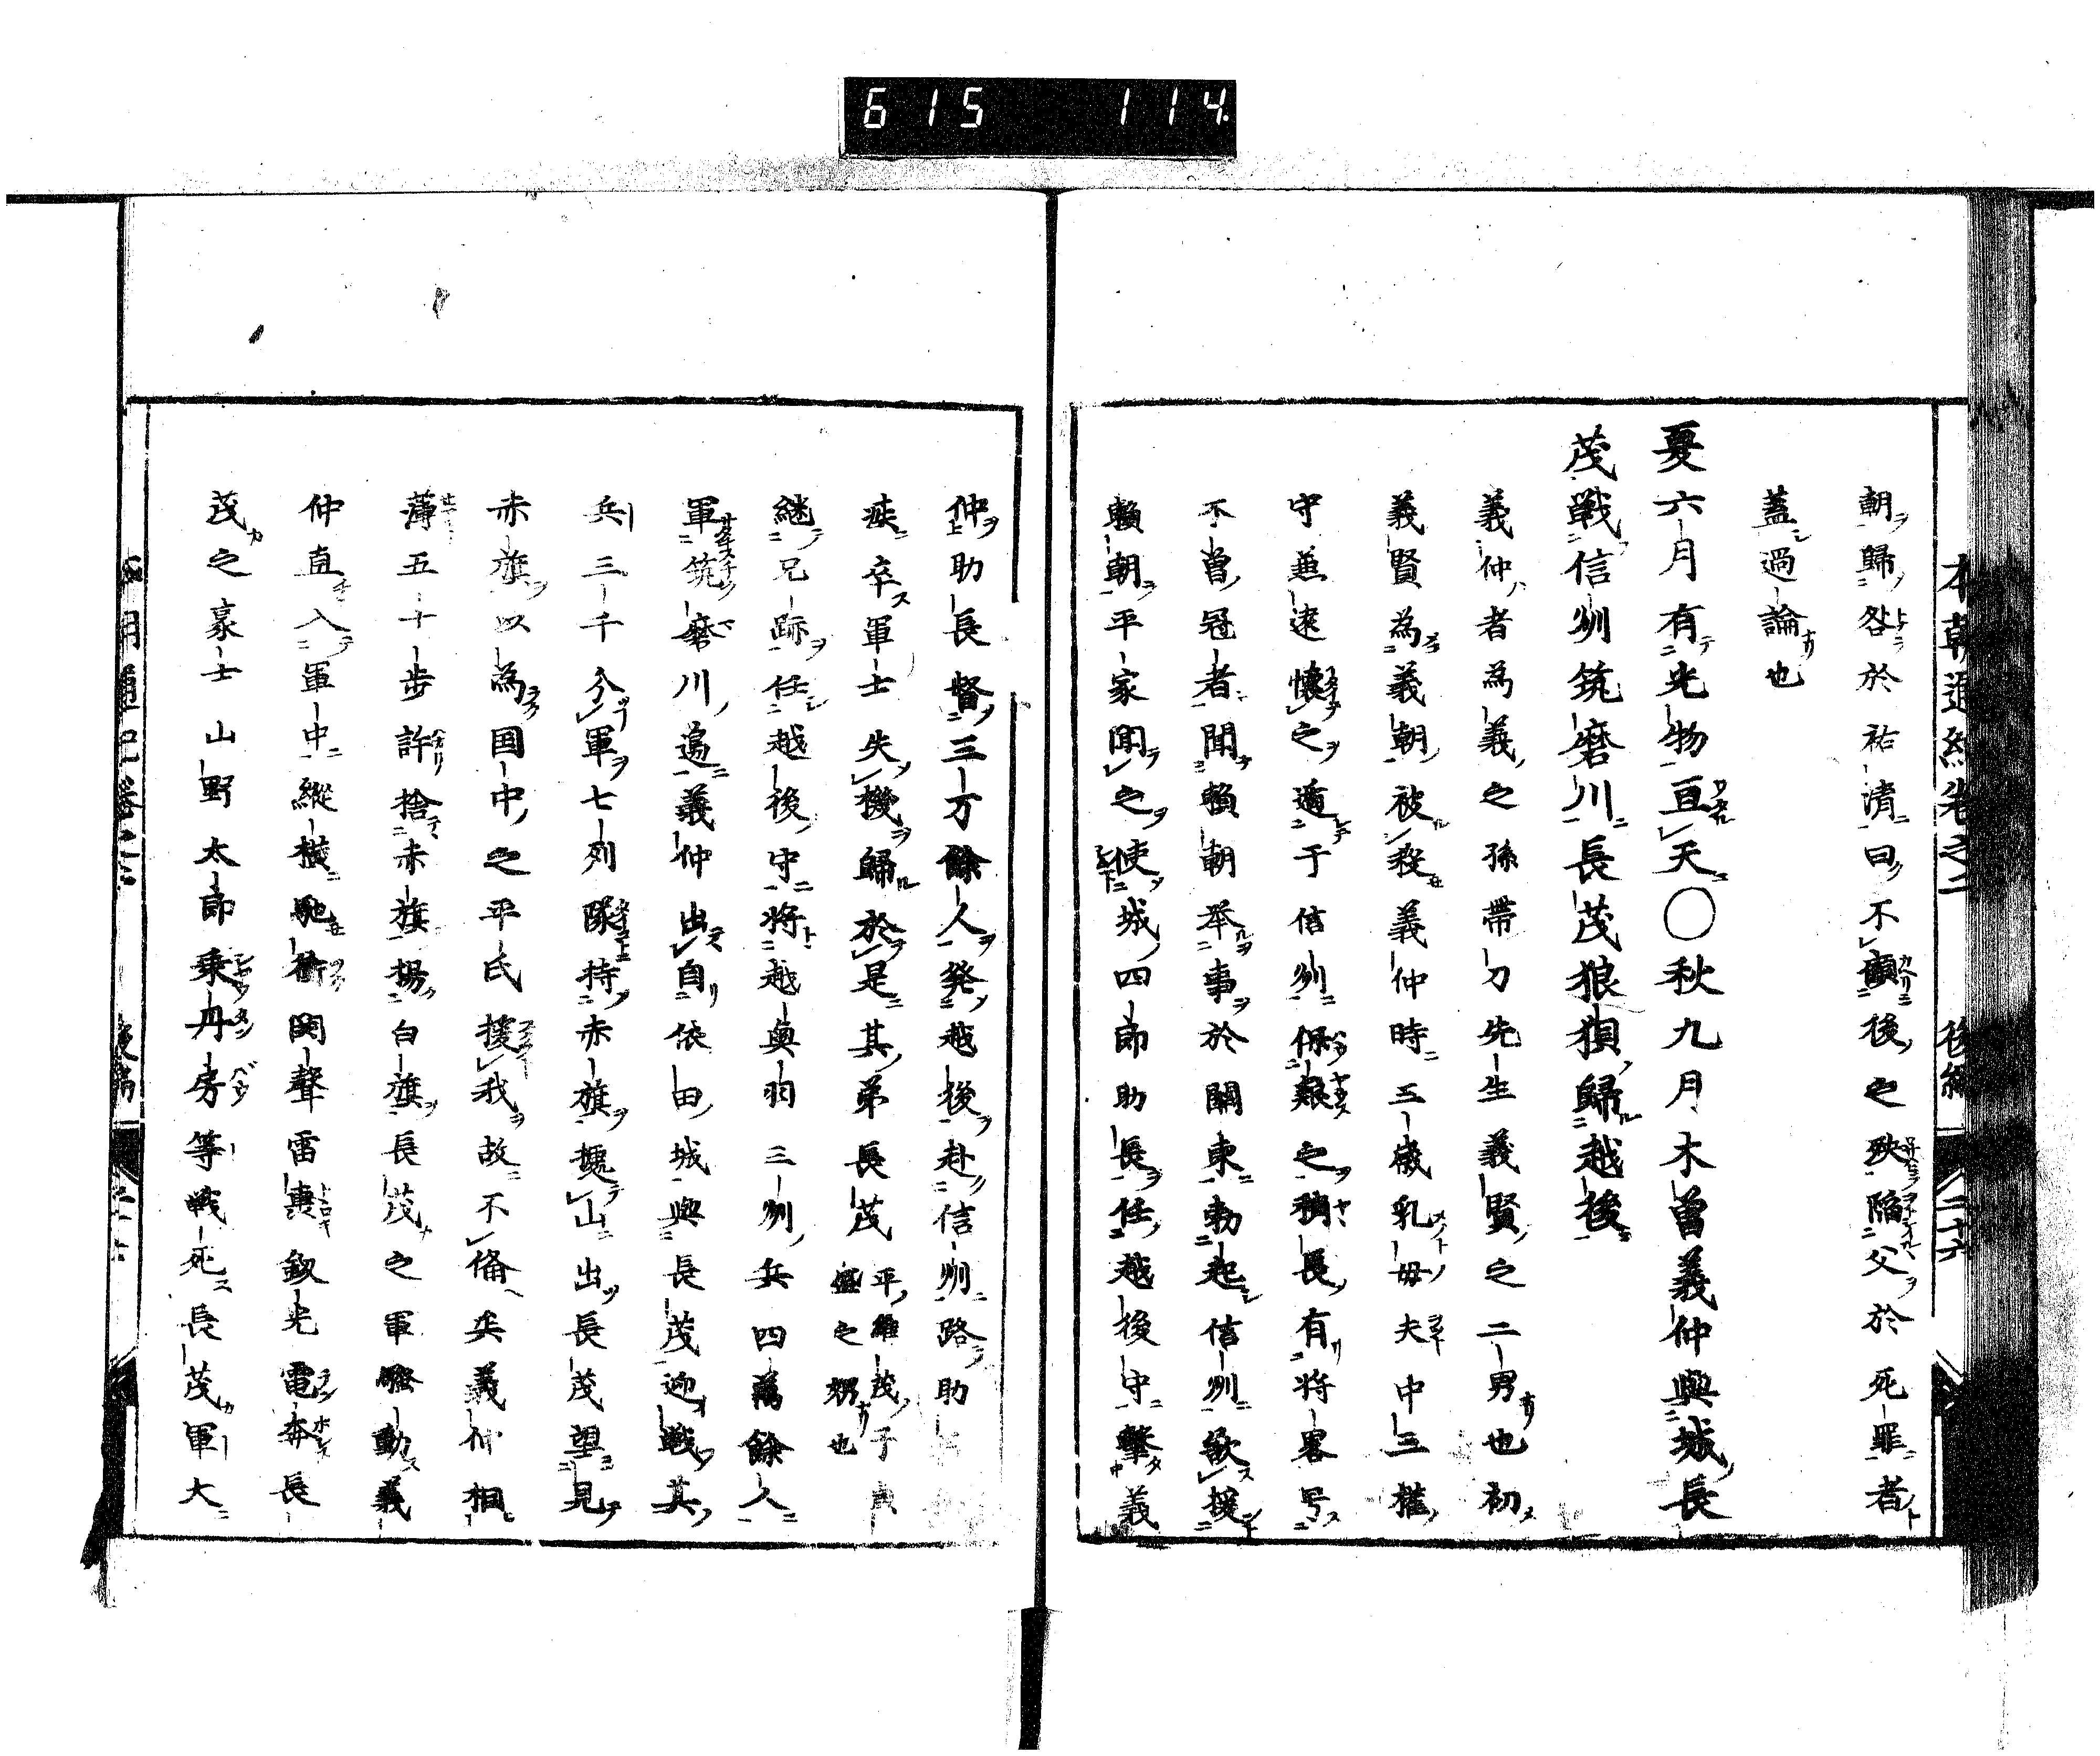 615 114
朝歸咎於祐清曰不顧後之殃陥父於死罪者
蓋過論也
夏六月有光物亘天○秋九月木曽義仲與城長
茂戦信州筑磨川長茂狼狽歸越後
義仲者為義之孫帯刀先生義賢之二男也初
義賢為義朝被殺義仲時三歳乳母夫中三權
守兼遠懐之遁于信州保養之稍長有将畧号
木曽冠者聞頼朝挙事於關東勃起信州欲援
頼朝平家聞之使城四郎助長任越後守撃義
仲助長督三万餘人発越後赴信州路助
疾卒軍士失機歸於是其弟長茂
平維茂子
盛之甥也
継兄跡任越後守将越奥羽三州兵四萬餘人
軍筑磨川邉義仲出自依田城與長茂迎戦其
兵三千分軍七列隊持赤旗擁山出長茂望見
赤旗以為国中之平氏援我故不俻矣義仲相
薄五十歩許捨赤旗揚白旗長茂之軍騒動義
仲直入軍中縱横馳衝鬨聲雷轟釼光電奔長
茂之豪士山野太郎乗丹房等戦死長茂軍大